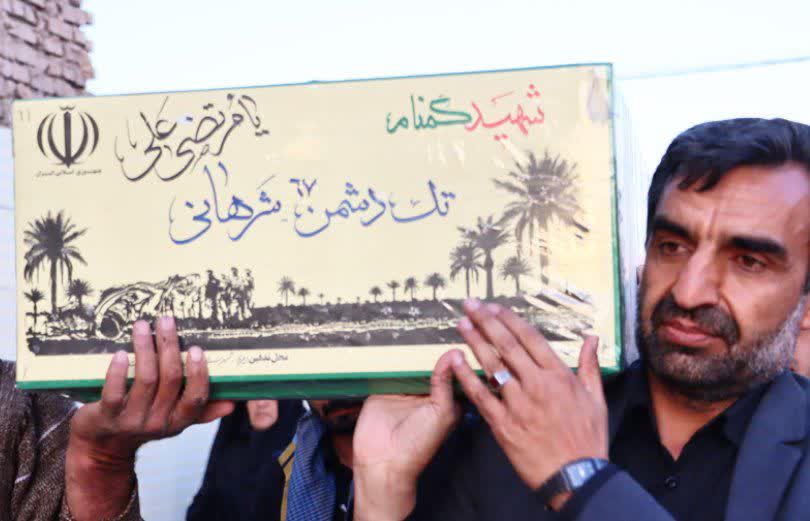 شهید گمنام
یا مرتضی علی
جمهوری اسلامی ایران
تک دشمن ۶۷ شرهانی
محل تدفین